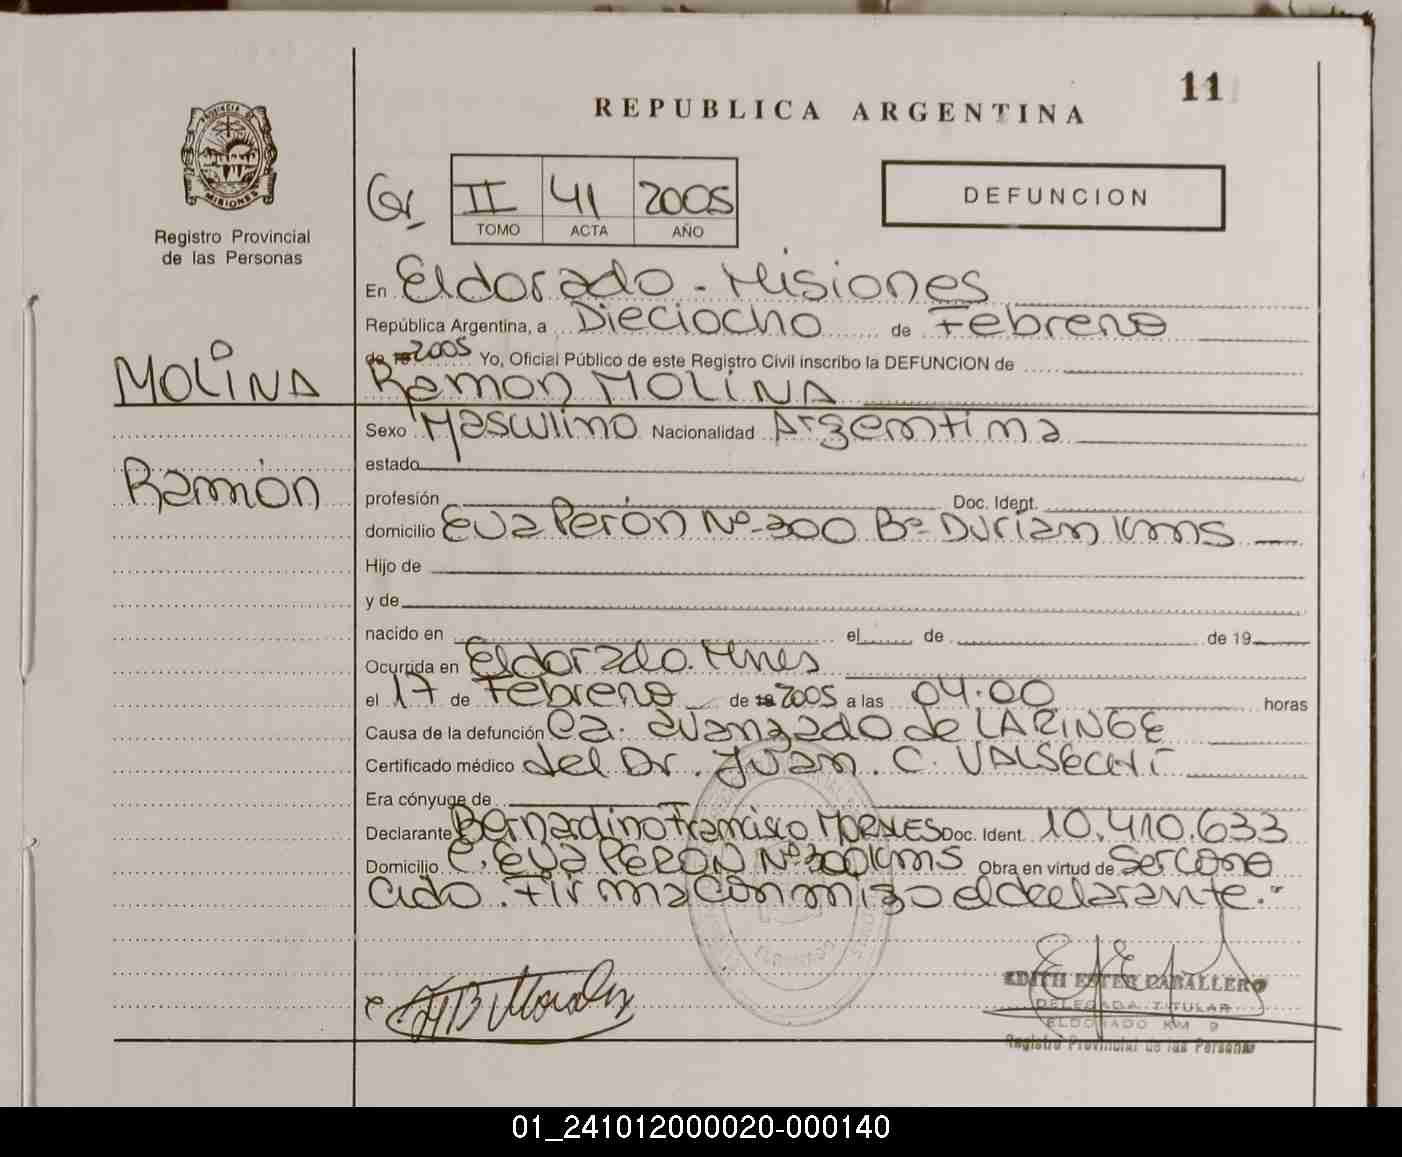 11
REPUBLICA ARGENTINA
PROVINCIA DE
MISIONES
Registro Provincial
de las Personas
DEFUNCION
II 41 2005
TOMO ACTA AÑO
En Eldorado - Misiones
República Argentina, a Dieciocho de Febrero
de 2005 Yo, Oficial Público de este Registro Civil inscribo la DEFUNCION de
MOLINA
Ramon MOLINA
Sexo Masculino Nacionalidad Argentina
estado
Ramón
profesión Doc. Ident.
domicilio Eva Perón Nº 300 Bº Durian
Hijo de
y de
nacido en el de de 19
Ocurrida en Eldorado. Mnes
el 17 de Febrero de 2005 a las 04:00 horas
Causa de la defunción Ca. avanzado de LARINGE
Certificado médico del Dr. Juan. C. VALSECHI
Era cónyuge de
Declarante Bernardino Francisco MORALES Doc. Ident. 10.410.633
Domicilio C. EVA PERON Nº 300 Obra en virtud de Ser cono
cido. Firma conmigo el declarante.-
EDITH ESTER CABALLERO
DELEGADA TITULAR
ELDORADO KM 9
Registro Provincial de las Personas
01_241012000020-000140